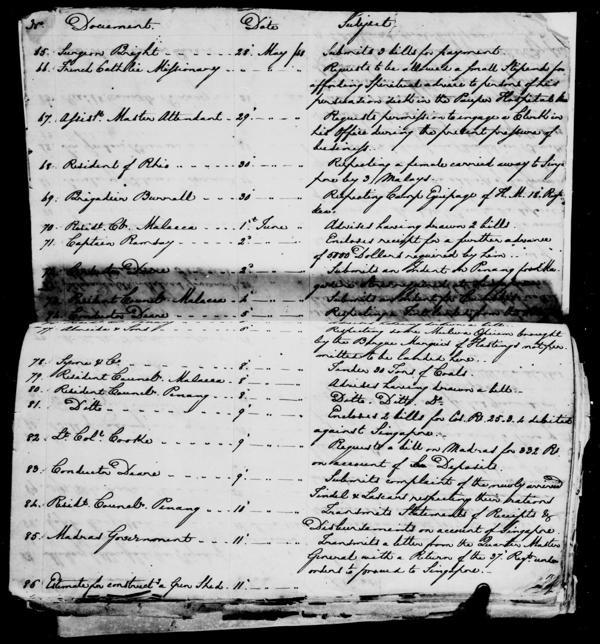 Document. Date Subject.
65. Surgeon Bright 28 May Submits 3 bills for payment.
66. French Catholic Missionary Requests to be allowed a small Stipends for
affording Spiritual advice to persons of his
persuasion sick in the Pauper Hospital
67. Assist. Master Attendant 29 Requests permission to engage a Clerk in
his office during the present pressure of
business.
68. Resident of Rhio 30 Respecting a female carried away to Singa
pore by 3 Malays.
69. Brigadier Burrell 30 Respecting Camp Equipage of H. M. 18. Regt
70. Residt. Cr. Malacca 1st June Advises having drawn 2 bills.
71. Captain Ramsay 2 Encloses receipt for a further advance
of Dollars required by him
72. Conductor Deane 2 Submits an Indent Penang for
73. Resident Councr. Malacca 4 Submits an Indent for
74. Conductor Deane 5 Respecting
77. & Sons Respecting Officers brought
by the Barque Marquis of Hastings not per
mitted to be landed here
78. Syme & Co. 8 Tender 30 Tons of Coals.
79. Resident Councr. Malacca 8 Advises having drawn a bill.
80. Resident Councr. Penang 8 Ditto. Ditto. Do.
81. Ditto 9 Encloses 2 bills for Co. Rs. 25.3.4 debited
against Singapore.
82. Lt. Coll. Cooke 9 Requests a bill on Madras for 332 Rs.
on account of Deposits.
83. Conductor Deane 9 Submits complaint of the newly arrived
Tindel & Lascars respecting their rations
84. Residt. Councr. Penang 10 Transmits Statements of Receipts &
Disbursements on account of Singapore
85. Madras Government 11 Transmits a letter from the Quarter Master
General with a Return of the 27. Regt. under
orders to proceed to Singapore.
86. Estimate for construct. a Gun Shed. 11